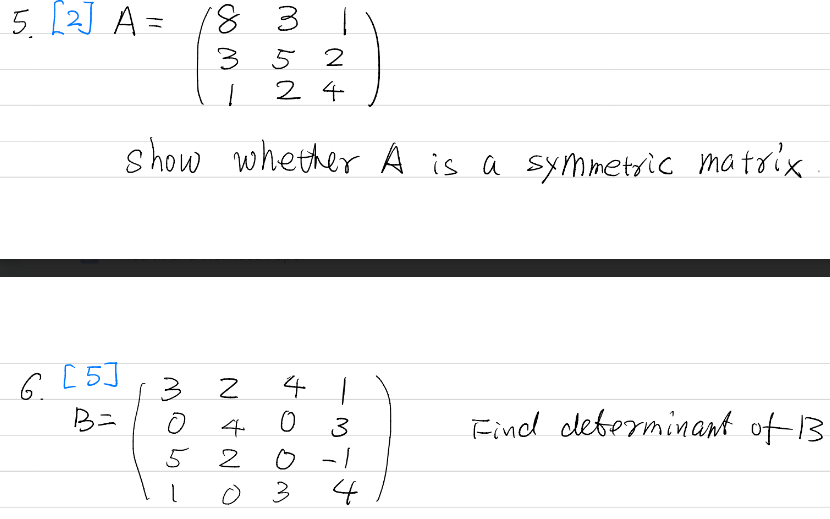 5. [2] A = (8 3 1
3 5 2
1 2 4)
show whether A is a symmetric matrix.
6. [5]
B= (3 2 4 1
0 4 0 3
5 2 0 -1
1 0 3 4) Find determinant of B